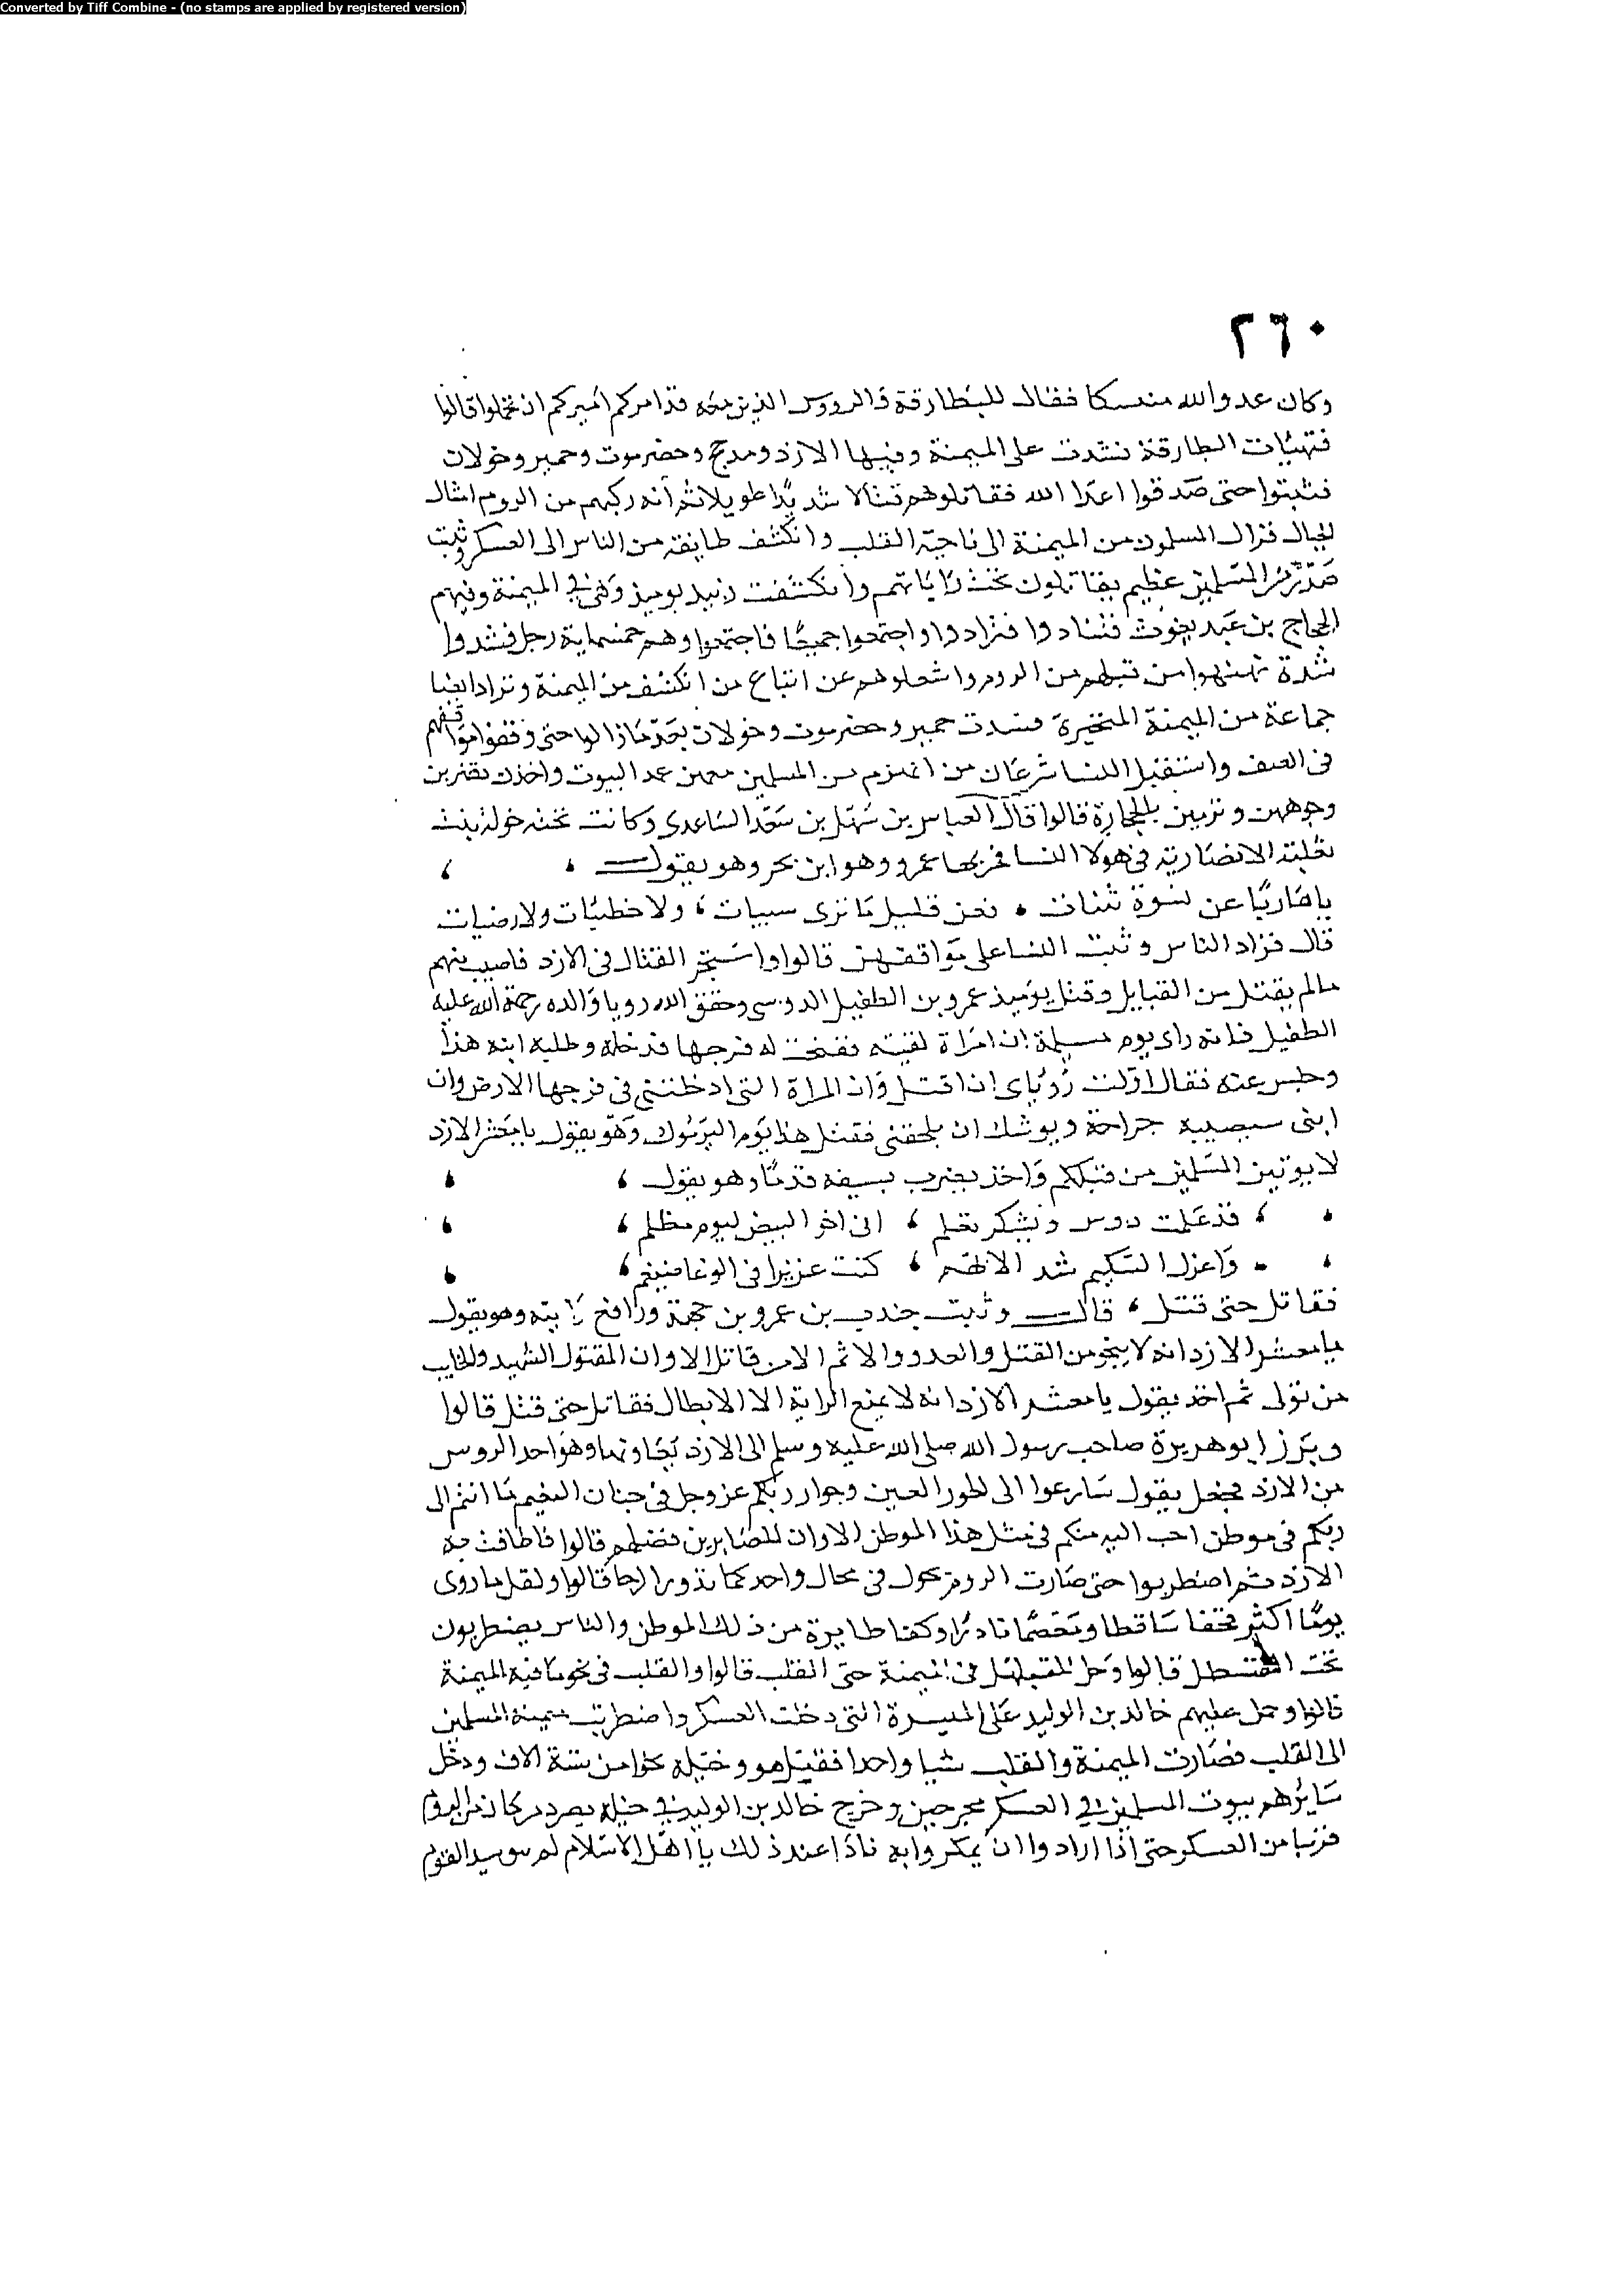 Converted by Tiff Combine - (no stamps are applied by registered version)
٢٦٠
وكان عدو الله متنسكا فقال للبطارقة والروس الذين معه قد امركم اميركم ان تحملوا قالوا
فتهيات البطارقة فشدت على الميمنة وفيها الازد ومذحج وحضرموت وحمير وخولان
فثبتوا حتى صدقوا اعدا الله فقاتلوهم قتالا شديدا طويلا ثم انه ركبهم من الروم امثال
الجبال فزال المسلمون من الميمنة الى ناحية القلب وانكشف طايفة من الناس الى العسكر وثبت
صدر من المسلمين عظيم يقاتلون تحت راياتهم وانكشفت زبيد يوميذ وهي في الميمنة وفيهم
الحجاج بن عبد يغوث فتنادوا فترادوا واجتمعوا جميعا فاجتمعوا وهم خمسماية رجل فشدوا
شدة نهنهوا من قبلهم من الروم واشغلوهم عن اتباع من انكشف من الميمنة وتراد ايضا
جماعة من الميمنة المتحيزة فشدت حمير وحضرموت وخولان بعد ما زالوا حتى وقفوا مواقفهم
في الصف واستقبل النسا سرعان من انهزم من المسلمين معهن عمد البيوت واخذن يضربن
وجوههن وترمين بالحجارة قالوا قال العباس بن سهل بن سعد الساعدي وكانت تحته خولة بنت
ثعلبة الانصارية في هولا النسا فمر بها عمرو وهو ابن بحر وهو يقول
يا هاربا عن نسوة ثقات ، نحن قليل ما ترى سبيات ، ولا حظيات ولا رضيات
قال فتراد الناس وثبت النسا على مواقفهن قالوا واستحر القتال في الازد فاصيب منهم
مالم يقتل من القبايل وقتل يوميذ عمرو بن الطفيل الدوسي وحقق الله رويا والده رحمة الله عليه
الطفيل فانه راى يوم مسيلمة ان امراة لقيته ففتحت له فرجها فدخله وطلبه ابنه هذا
وحبس عنه فقال اولت روياي ان اقتل وان المراة التي ادخلتني في فرجها الارض وان
ابني سيصيبه جراحة ويوشك ان يلحقني فقتل هذا يوم اليرموك وهو يقول يا معشر الازد
لا يوتين المسلمين من قبلكم واخذ يضرب بسيفه قدما وهو يقول ،
، قد علمت دوس ويشكر تعلم ، اني اخو البيض ليوم مظلم ،
، واعزل الشكيم شد الابهم ، كنت عزيزا في الوغا ضيغم ،
فقاتل حتى قتل ، قال وثبت جندب بن عمرو بن حممة ورافع رايته وهو يقول
يا معشر الازد انه لا ينجو من القتل والعدو والاثم الا من قاتل الا وان المقتول الشهيد والخايب
من تولى ثم اخذ يقول يا معشر الازد انه لا يمنع الراية الا الابطال فقاتل حتى قتل قالوا
وبرز ابو هريرة صاحب رسول الله صلى الله عليه وسلم الى الازد وهو احد الروس
من الازد فجعل يقول سارعوا الى الحور العين وجوار ربكم عز وجل في جنان النعيم ما انتم الى
ربكم في موطن احب اليه منكم في مثل هذا الموطن الا وان للصابرين فضلهم قالوا فاطافت به
الازد ثم اضطربوا حتى صارت الروم تجول في مجال واحد كما تدور الرحا قالوا ولقل ما روى
يوما اكثر قحفا ساقطا ومعصما نادرا وكفا طايرة من ذلك الموطن والناس يضطربون
تحت القسطل قالوا وجل القتل في الميمنة حتى القلب قالوا والقلب في نحو مما فيه الميمنة
قالوا وحمل عليهم خالد بن الوليد على الميسرة التي دخلت العسكر واضطربت ميمنة المسلمين
الى القلب فصارت الميمنة والقلب شيا واحدا فقتل هو وخيله نحوا من ستة الاف ودخل
سايرهم بيوت المسلمين في العسكر مجرحين وخرج خالد بن الوليد في خيله يصرد من كان من الروم
قريبا من العسكر حتى اذا ارادوا ان يمكروا به نادى عند ذلك يا اهل الاسلام لم يبق بيد القوم